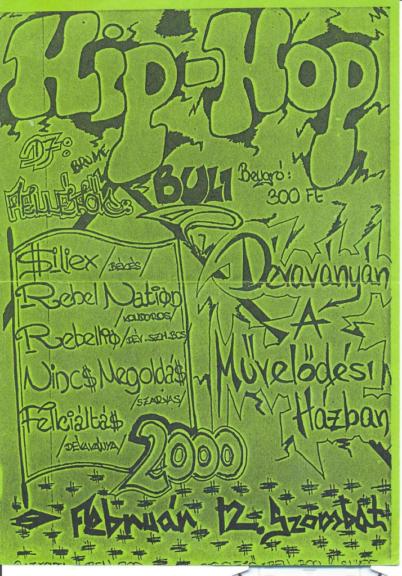 Hip-Hop
DJ:
BULI
Beugró:
300 Ft
FELLÉPŐK:
$iliex /BÉKÉS/
Rebel Nation
/KONDOROS/
Rebellió /DÉV. SZH. BCS/
Ninc$ Megoldá$
/SZARVAS/
Felkiáltá$
/DÉVAVÁNYA/
Dévaványán
A
Művelődési
Házban
2000
Február 12. Szombat